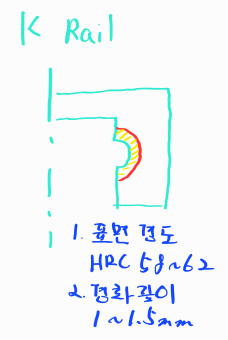 K Rail
1. 표면 경도
HRC 58~62
2. 경화깊이
1~1.5mm